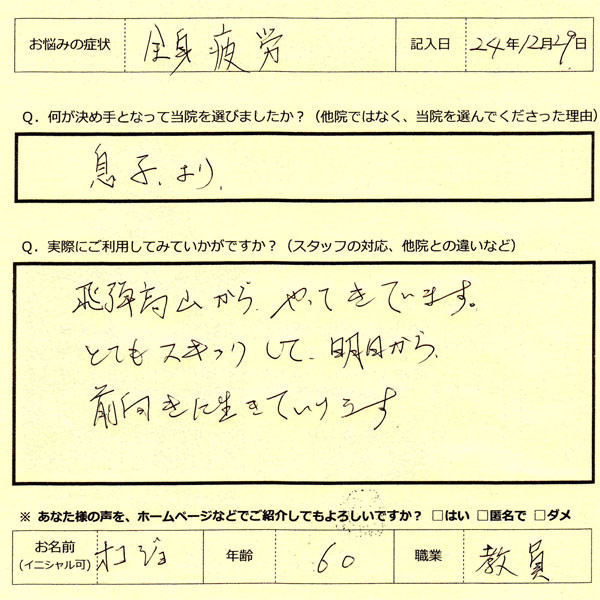 お悩みの症状 全身疲労 記入日 24年12月29日
Q．何が決め手となって当院を選びましたか？（他院ではなく、当院を選んでくださった理由）
息子、より、
Q．実際にご利用してみていかがですか？（スタッフの対応、他院との違いなど）
飛弾高山から、やってきています。
とてもスキッリして、明日から、
前向きに生きていけうます
※ あなた様の声を、ホームページなどでご紹介してもよろしいですか？ □はい □匿名で □ダメ
お名前 オコジョ 年齢 60 職業 教員
(イニシャル可)